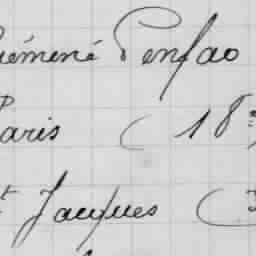 uémené Penfao
Paris ( 18
t Jacques (